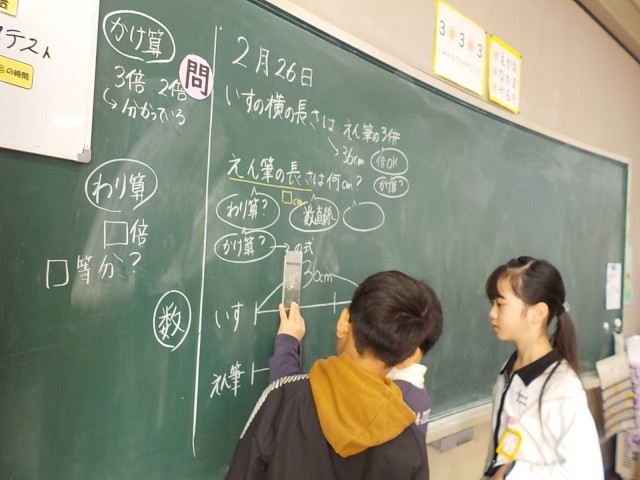 テスト
の時間
かけ算
3倍 2倍
分かっている
わり算
□倍
□等分?
数
問
2月26日
いすの横の長さは えん筆の3倍
36cm 倍OK
えん筆の長さは何cm? かけ算?
□cm
わり算? 数直線
かけ算? の式
36cm
いす
えん筆
3 3 3